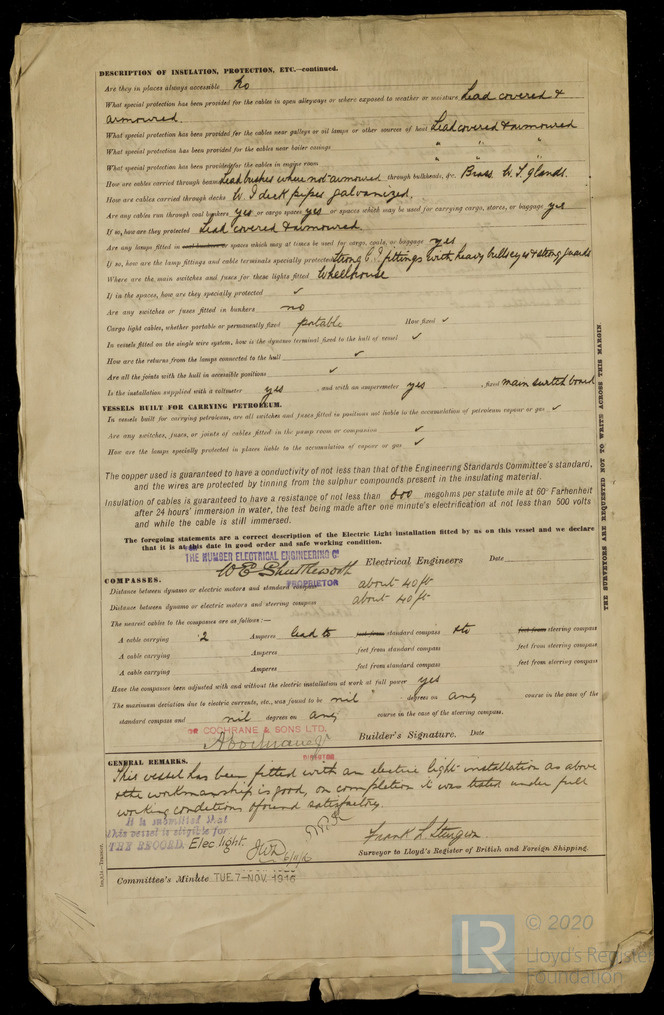 DESCRIPTION OF INSULATION, PROTECTION, ETC.—continued.
Are they in places always accessible no
What special protection has been provided for the cables in open alleyways or where exposed to weather or moisture Lead covered &
armoured.
What special protection has been provided for the cables near galleys or oil lamps or other sources of heat Lead covered & armoured
What special protection has been provided for the cables near boiler casings " " "
What special protection has been provided for the cables in engine room " " "
How are cables carried through beams Lead bushes where not armoured through bulkheads, &c. Brass W.T. glands.
How are cables carried through decks W I deck pipes galvanized.
Are any cables run through coal bunkers yes or cargo spaces yes or spaces which may be used for carrying cargo, stores, or baggage yes
If so, how are they protected Lead covered & armoured
Are any lamps fitted in coal bunkers or spaces which may at times be used for cargo, coals, or baggage yes
If so, how are the lamp fittings and cable terminals specially protected strong C.I. fittings with heavy bullseyes & strong guards
Where are the main switches and fuses for these lights fitted Wheelhouse
If in the spaces, how are they specially protected ✓
Are any switches or fuses fitted in bunkers no
Cargo light cables, whether portable or permanently fixed portable How fixed ✓
In vessels fitted on the single wire system, how is the dynamo terminal fixed to the hull of vessel ✓
How are the returns from the lamps connected to the hull ✓
Are all the joints with the hull in accessible positions ✓
Is the installation supplied with a voltmeter yes , and with an amperemeter yes , fixed main switchboard
VESSELS BUILT FOR CARRYING PETROLEUM.
In vessels built for carrying petroleum, are all switches and fuses fitted in positions not liable to the accumulation of petroleum vapour or gas ✓
Are any switches, fuses, or joints of cables fitted in the pump room or companion ✓
How are the lamps specially protected in places liable to the accumulation of vapour or gas ✓
The copper used is guaranteed to have a conductivity of not less than that of the Engineering Standards Committee's standard,
and the wires are protected by tinning from the sulphur compounds present in the insulating material.
Insulation of cables is guaranteed to have a resistance of not less than 600 megohms per statute mile at 60° Farhenheit
after 24 hours' immersion in water, the test being made after one minute's electrification at not less than 500 volts
and while the cable is still immersed.
The foregoing statements are a correct description of the Electric Light installation fitted by us on this vessel and we declare
that it is at this date in good order and safe working condition.
THE HUMBER ELECTRICAL ENGINEERING Co
W E Shuttleworth Electrical Engineers Date
PROPRIETOR
COMPASSES.
Distance between dynamo or electric motors and standard compass about 40 ft
Distance between dynamo or electric motors and steering compass about 40 ft
The nearest cables to the compasses are as follows:—
A cable carrying 2 Amperes lead to feet from standard compass & to feet from steering compass
A cable carrying Amperes feet from standard compass feet from steering compass
A cable carrying Amperes feet from standard compass feet from steering compass
Have the compasses been adjusted with and without the electric installation at work at full power yes
The maximum deviation due to electric currents, etc., was found to be nil degrees on any course in the case of the
standard compass and nil degrees on any course in the case of the steering compass.
COCHRANE & SONS LTD.
A Cochrane Jr Builder's Signature. Date
DIRECTOR
GENERAL REMARKS.
This vessel has been fitted with an electric light installation as above
& the workmanship is good, on completion it was tested under full
working conditions & found satisfactory.
It is submitted that
this vessel is eligible for
THE RECORD. Elec light.
6/11/16
Frank L. Sturgeon
Surveyor to Lloyd's Register of British and Foreign Shipping.
Committee's Minute TUE. 7-NOV. 1916
THE SURVEYORS ARE REQUESTED NOT TO WRITE ACROSS THIS MARGIN.
LR © 2020
Lloyd's Register
Foundation